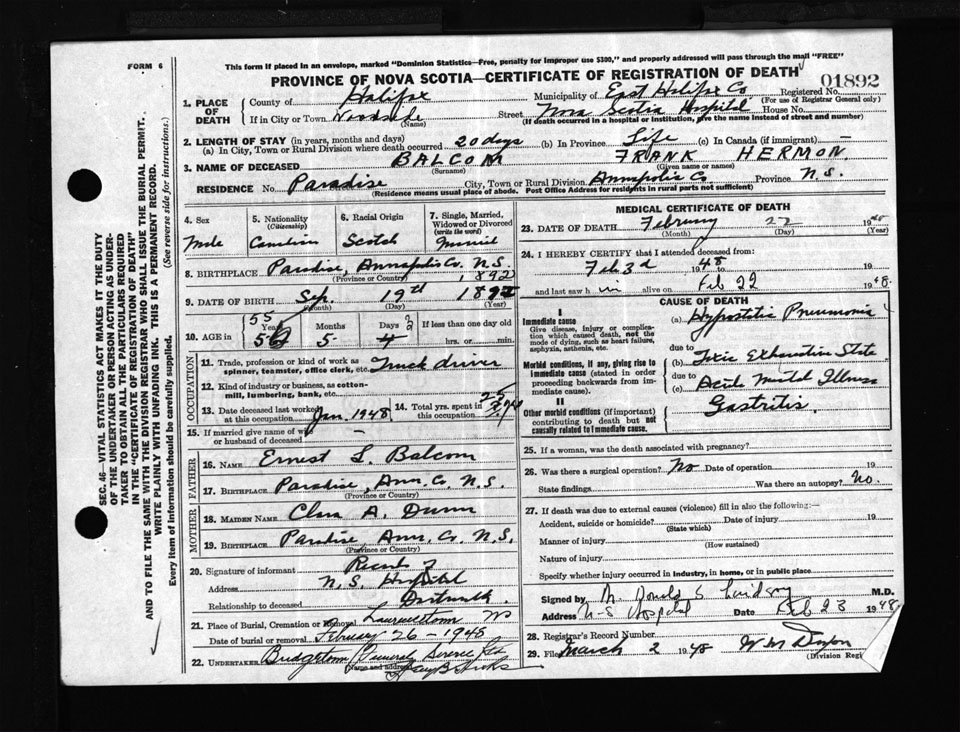 FORM 6
This form if placed in an envelope, marked "Dominion Statistics—Free, penalty for improper use $300," and properly addressed will pass through the mail "FREE"
PROVINCE OF NOVA SCOTIA—CERTIFICATE OF REGISTRATION OF DEATH
01892
Registered No.
(For use of Registrar General only)
1. PLACE OF DEATH
County of Halifax
Municipality of East Halifax Co
If in City or Town Woodside
(Name)
Street Nova Scotia Hospital House No.
(If death occurred in a hospital or institution, give the name instead of street and number)
2. LENGTH OF STAY (in years, months and days)
(a) In City, Town or Rural Division where death occurred 20 days (b) In Province Life (c) In Canada (if immigrant) —
3. NAME OF DECEASED BALCOM FRANK HERMON.
(Surname) (Given name or names)
RESIDENCE No. Paradise City, Town or Rural Division Annapolis Co Province N.S.
(Residence means usual place of abode. Post Office Address for residents in rural parts not sufficient)
4. Sex
Male
5. Nationality
(Citizenship)
Canadian
6. Racial Origin
Scotch
7. Single, Married, Widowed or Divorced
(write the word)
8. BIRTHPLACE Paradise, Annapolis Co. N.S.
(Province or Country)
1892
9. DATE OF BIRTH Sep. 19th
(Month) (Day) (Year)
10. AGE in
55
Years
Months 5
Days
If less than one day old
hrs. or min.
OCCUPATION
11. Trade, profession or kind of work as spinner, teamster, office clerk, etc. Truck driver
12. Kind of industry or business, as cotton-mill, lumbering, bank, etc.
13. Date deceased last worked at this occupation Jan. 1948
14. Total yrs. spent in this occupation 25
15. If married give name of wife or husband of deceased —
FATHER
16. NAME Ernest L. Balcom
17. BIRTHPLACE Paradise, Ann. Co. N.S.
(Province or Country)
MOTHER
18. MAIDEN NAME Clara A. Dunn
19. BIRTHPLACE Paradise Ann. Co. N.S.
(Province or Country)
20. Signature of informant Records of
Address N.S. Hospital
Relationship to deceased Dartmouth.
21. Place of Burial, Cremation or Removal Lawrencetown NS
Date of burial or removal February 26 - 1948
22. UNDERTAKER Bridgetown Funeral Service Ltd
(Name and address)
MEDICAL CERTIFICATE OF DEATH
23. DATE OF DEATH February 22 1948
(Month) (Day) (Year)
24. I HEREBY CERTIFY that I attended deceased from:
Feb 3d 1948 to Feb 22
and last saw him alive on 1948.
CAUSE OF DEATH
I
Immediate cause
Give disease, injury or complication which caused death, not the mode of dying, such as heart failure, asphyxia, asthenia, etc.
(a) Hypostatic Pneumonia
due to
Morbid conditions, if any, giving rise to immediate cause (stated in order proceeding backwards from immediate cause).
(b) Toxic Exhaustive State
due to
(c) Acute Mental Illness
II
Other morbid conditions (if important) contributing to death but not causally related to immediate cause.
Gastritis
25. If a woman, was the death associated with pregnancy?
26. Was there surgical operation? No Date of operation 19
State findings Was there an autopsy? No.
27. If death was due to external causes (violence) fill in also the following:—
Accident, suicide or homicide? Date of injury 19
(State which)
Manner of injury
(How sustained)
Nature of injury
Specify whether injury occurred in industry, in home, or in public place
Signed by M.D.
Address N-S Hospital Date Feb 23 1948
28. Registrar's Record Number
29. Filed March 2 1948
(Division Regi
SEC. 46—VITAL STATISTICS ACT MAKES IT THE DUTY OF THE UNDERTAKER OR PERSON ACTING AS UNDERTAKER TO OBTAIN ALL THE PARTICULARS REQUIRED IN THE "CERTIFICATE OF REGISTRATION OF DEATH"
AND TO FILE THE SAME WITH THE DIVISION REGISTRAR WHO SHALL ISSUE THE BURIAL PERMIT.
WRITE PLAINLY WITH UNFADING INK. THIS IS A PERMANENT RECORD.
Every item of information should be carefully supplied. (See reverse side for instructions.)